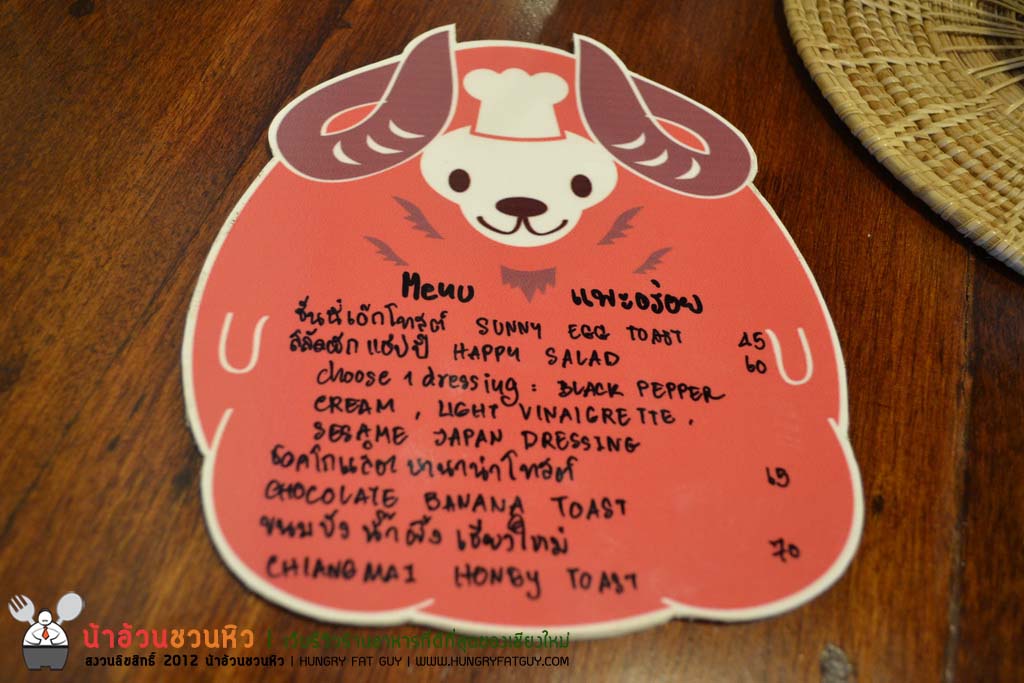 Menu แพะอร่อย
ซันนี่เอ๊กโทสต์ SUNNY EGG TOAST 45
สลัดผัก แฮปปี้ HAPPY SALAD 60
choose 1 dressing : BLACK PEPPER
CREAM , LIGHT VINAIGRETTE ,
SESAME JAPAN DRESSING
ช็อคโกแล็ต บานาน่า โทสต์ 69
CHOCOLATE BANANA TOAST
ขนมปัง น้ำผึ้ง เชียงใหม่ 70
CHIANGMAI HONEY TOAST
น้าอ้วนชวนหิว / เว็บรีวิวร้านอาหารที่ดีที่สุดของเชียงใหม่
สงวนลิขสิทธิ์ 2012 น้าอ้วนชวนหิว | HUNGRY FAT GUY | WWW.HUNGRYFATGUY.COM